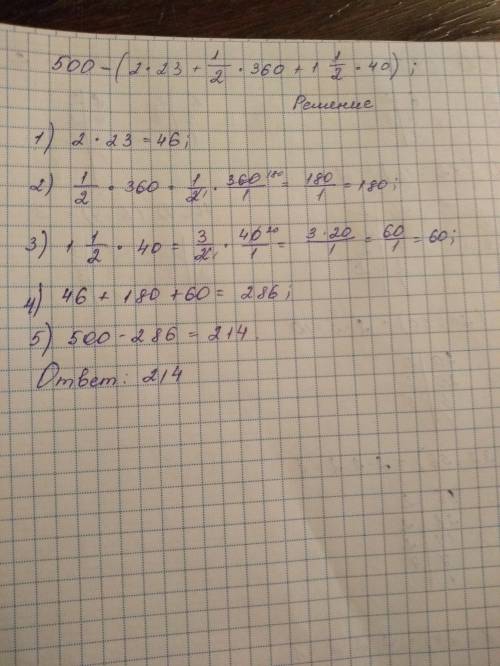 500 - (2 · 23 + 1/2 · 360 + 1 1/2 · 40) ;
Решение
1) 2 · 23 = 46;
2) 1/2 · 360 = 1/2 1 · 360 180/1 = 180/1 = 180;
3) 1 1/2 · 40 = 3/2 1 · 40 20/1 = 3·20/1 = 60/1 = 60;
4) 46 + 180 + 60 = 286;
5) 500 - 286 = 214.
Ответ: 214